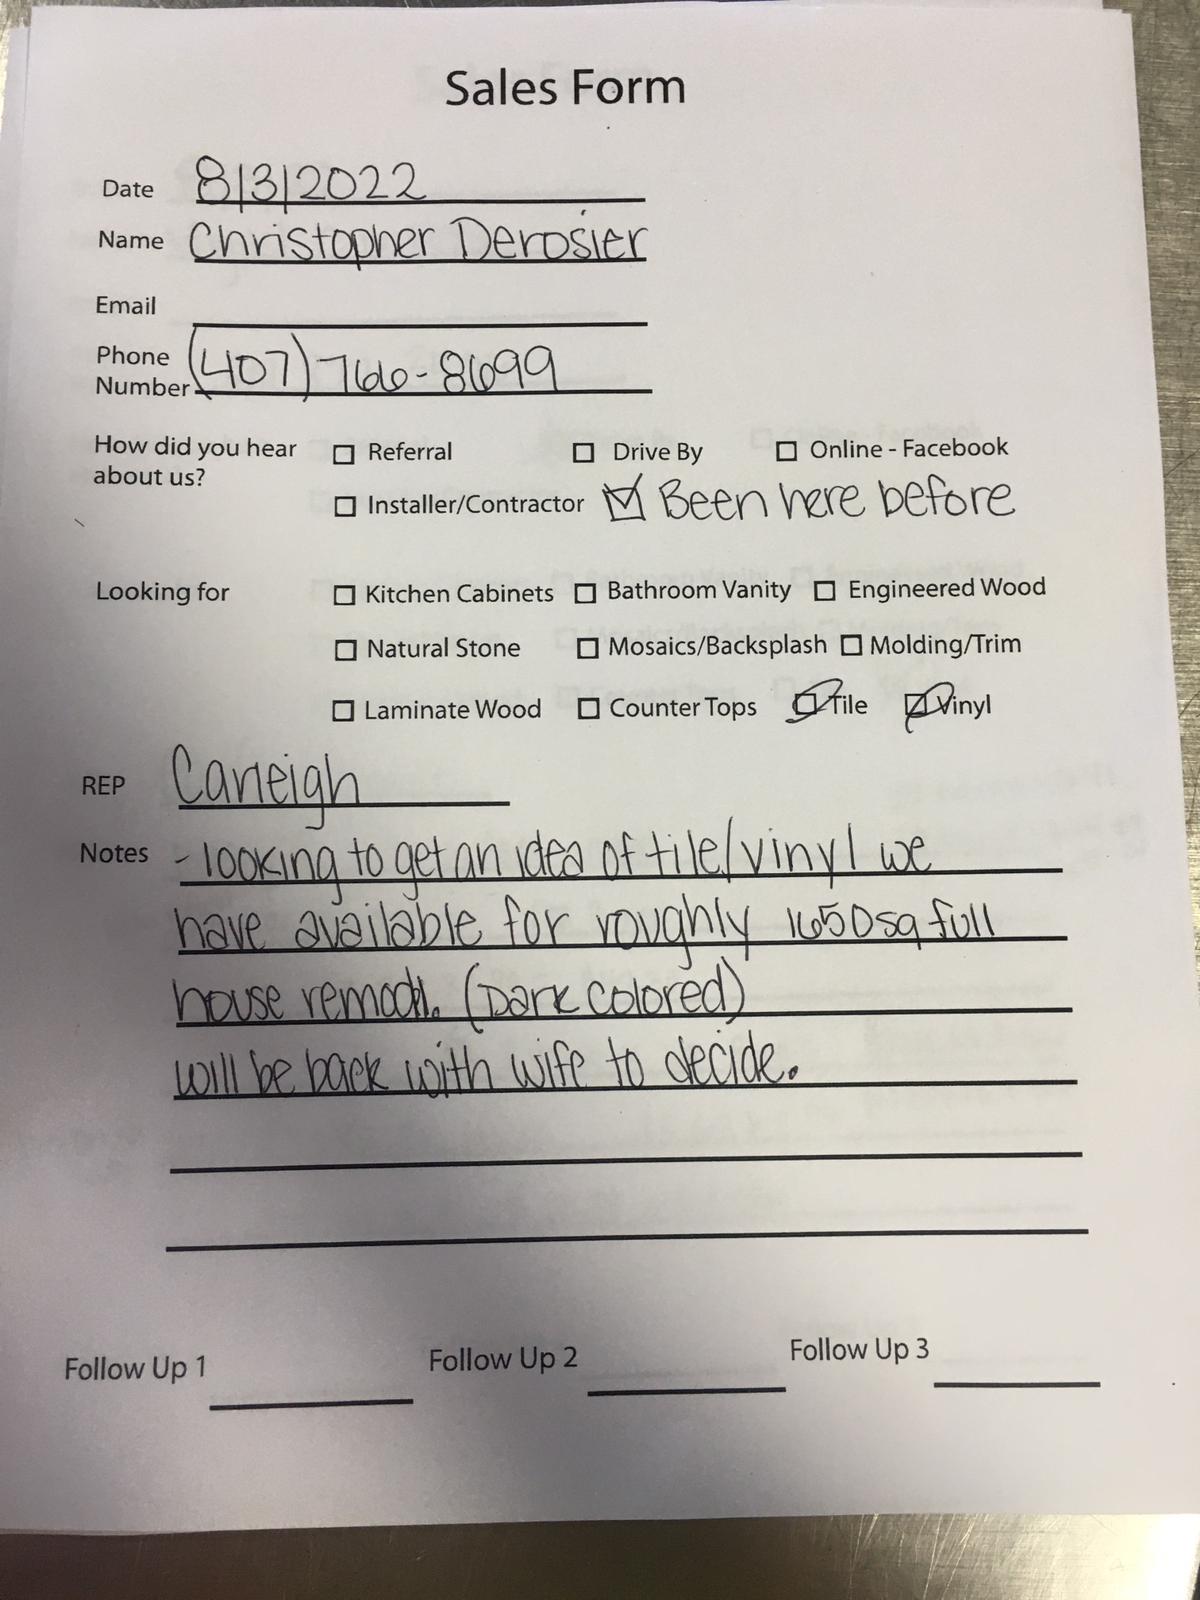 Sales Form
Date 8/3/2022
Name Christopher Derosier
Email
Phone Number (407) 766-8699
How did you hear about us?
☐ Referral ☐ Drive By ☐ Online - Facebook
☐ Installer/Contractor ☑ Been here before
Looking for ☐ Kitchen Cabinets ☐ Bathroom Vanity ☐ Engineered Wood
☐ Natural Stone ☐ Mosaics/Backsplash ☐ Molding/Trim
☐ Laminate Wood ☐ Counter Tops ☑ Tile ☑ Vinyl
REP Carleigh
Notes - looking to get an idea of tile/vinyl we
have available for roughly 1650sq full
house remodl. (Dark colored)
will be back with wife to decide.
Follow Up 1 Follow Up 2 Follow Up 3